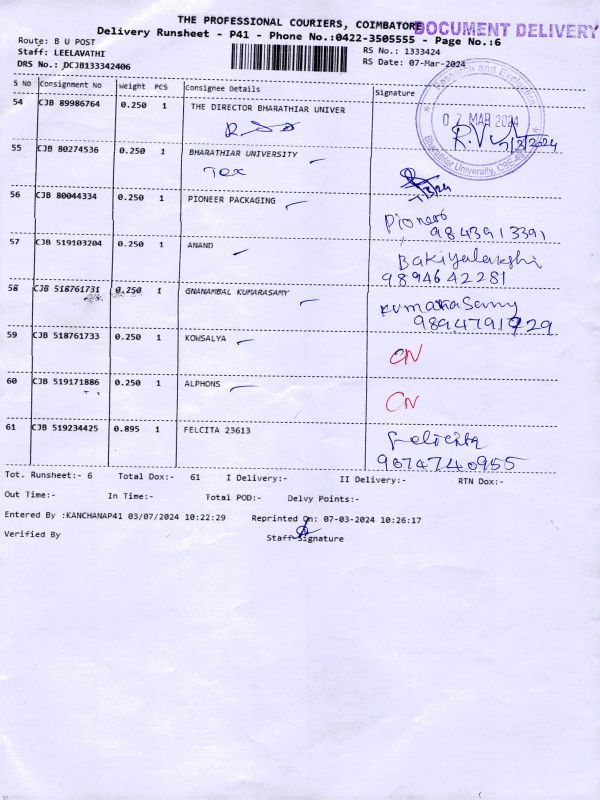 THE PROFESSIONAL COURIERS, COIMBATORE
DOCUMENT DELIVERY
Delivery Runsheet - P41 - Phone No.:0422-3505555 - Page No.:6
Route: B U POST
RS No.: 1333424
Staff: LEELAVATHI
RS Date: 07-Mar-2024
DRS No.: DCJB133342406
S No Consignment No Weight PCS Consignee Details Signature
54 CJB 89986764 0.250 1 THE DIRECTOR BHARATHIAR UNIVER
Research and Evaluation
07 MAR 2024
Bharathiar University, CBE-46
55 CJB 80274536 0.250 1 BHARATHIAR UNIVERSITY
56 CJB 80044334 0.250 1 PIONEER PACKAGING
9843913391
57 CJB 519103204 0.250 1 ANAND
Bakiyalakshi
9894642281
58 CJB 518761731 0.250 1 GNANAMBAL KUMARASAMY
Kumarasamy
59 CJB 518761733 0.250 1 KOWSALYA
CN
60 CJB 519171886 0.250 1 ALPHONS
CN
61 CJB 519234425 0.895 1 FELCITA 23613
Felicita
9674740955
Tot. Runsheet:- 6 Total Dox:- 61 I Delivery:- II Delivery:- RTN Dox:-
Out Time:- In Time:- Total POD:- Delvy Points:-
Entered By :KANCHANAP41 03/07/2024 10:22:29 Reprinted On: 07-03-2024 10:26:17
Verified By Staff Signature